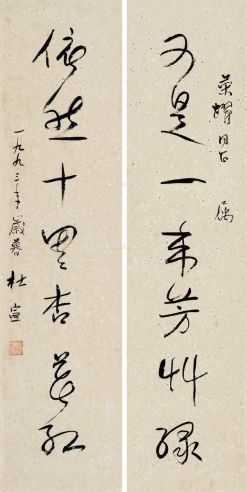 荣耀同志 属
又是一年芳艸绿
依然十里杏花红
一九九三年岁暮 杜宣